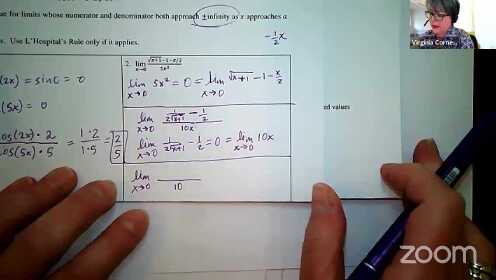 ue for limits whose numerator and denominator both approach ±infinity as x approaches a
s. Use L'Hospital's Rule only if it applies.
-½x
Virginia Corne
(2x) = sin0 = 0
(5x) = 0
cos(2x)·2 / cos(5x)·5 = 1·2 / 1·5 = 2/5
2. lim x→0 (√(x+1) - 1 - x/2) / 5x²
lim x→0 5x² = 0 = lim x→0 √(x+1) - 1 - x/2
lim x→0 (1/(2√(x+1)) - 1/2) / 10x
lim x→0 1/(2√(x+1)) - 1/2 = 0 = lim x→0 10x
lim x→0 ___ / 10
ed values
zoom